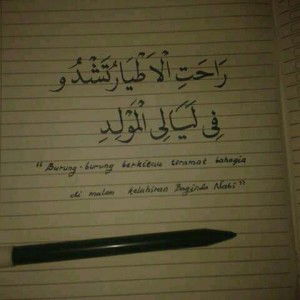 رَاحَتِ الْاَطْيَارُ تَشْدُو
فِى لَيَالِى الْمَوْلِدِ
"Burung-burung berkicau teramat bahagia
di malam kelahiran Baginda Nabi"